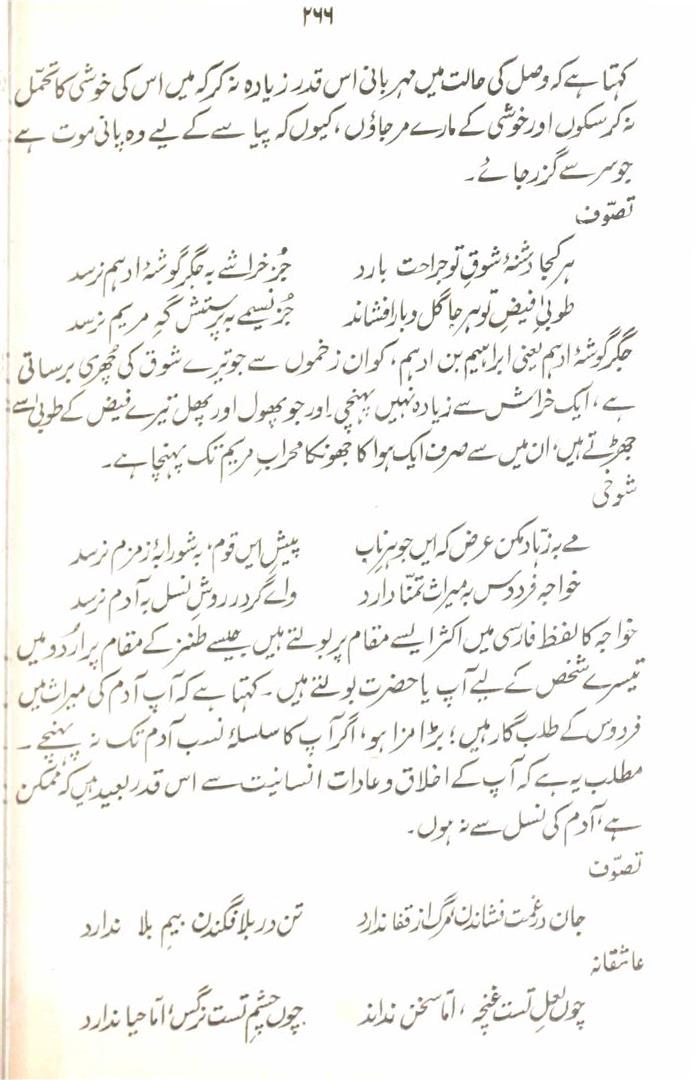 ۲۶۶
کہتا ہے کہ وصل کی حالت میں مہربانی اس قدر زیادہ نہ کر کہ میں اس کی خوشی کا تحمّل
نہ کر سکوں اور خوشی کے مارے مر جاؤں، کیوں کہ پیاسے کے لیے وہ پانی موت ہے
جو سر سے گزر جائے۔
تصوّف
ہر کجا دشنۂ شوقِ تو جراحت بارد جُز خراشے بہ جگر گوشۂ ادہم نرسد
طوبیِ فیضِ تو ہر جا گل و بار افشاند جُز نسیمے بہ پرستش گہِ مریم نرسد
جگر گوشۂ ادہم یعنی ابراہیم بن ادہم، کو ان زخموں سے جو تیرے شوق کی چُھری برساتی
ہے، ایک خراش سے زیادہ نہیں پہنچی اور جو پھول اور پھل تیرے فیض کے طوبیٰ سے
جھڑتے ہیں، ان میں سے صرف ایک ہوا کا جھونکا محرابِ مریم تک پہنچا ہے۔
شوخی
مے بہ زہّاد مکن عرض کہ ایں جوہرِ ناب پیشِ ایں قوم، بہ شورابۂ زمزم نرسد
خواجہ فردوس بہ میراث تمنّا دارد واے گر در روشِ نسل بہ آدم نرسد
خواجہ کا لفظ فارسی میں اکثر ایسے مقام پر بولتے ہیں جیسے طنز کے مقام پر اردو میں
تیسرے شخص کے لیے آپ یا حضرت بولتے ہیں۔ کہتا ہے کہ آپ آدم کی میراث میں
فردوس کے طلب گار ہیں؛ بڑا مزا ہو، اگر آپ کا سلسلۂ نسب آدم تک نہ پہنچے۔
مطلب یہ ہے کہ آپ کے اخلاق و عادات انسانیت سے اس قدر بعید ہیں کہ ممکن
ہے، آدم کی نسل سے نہ ہوں۔
تصوّف
جان در غمت فشاندن مرگ از قفا ندارد تن در بلا فگندن بیمِ بلا ندارد
عاشقانہ
چوں لعلِ تست غنچہ، امّا سخن نداند چوں چشمِ تست نرگس، امّا حیا ندارد